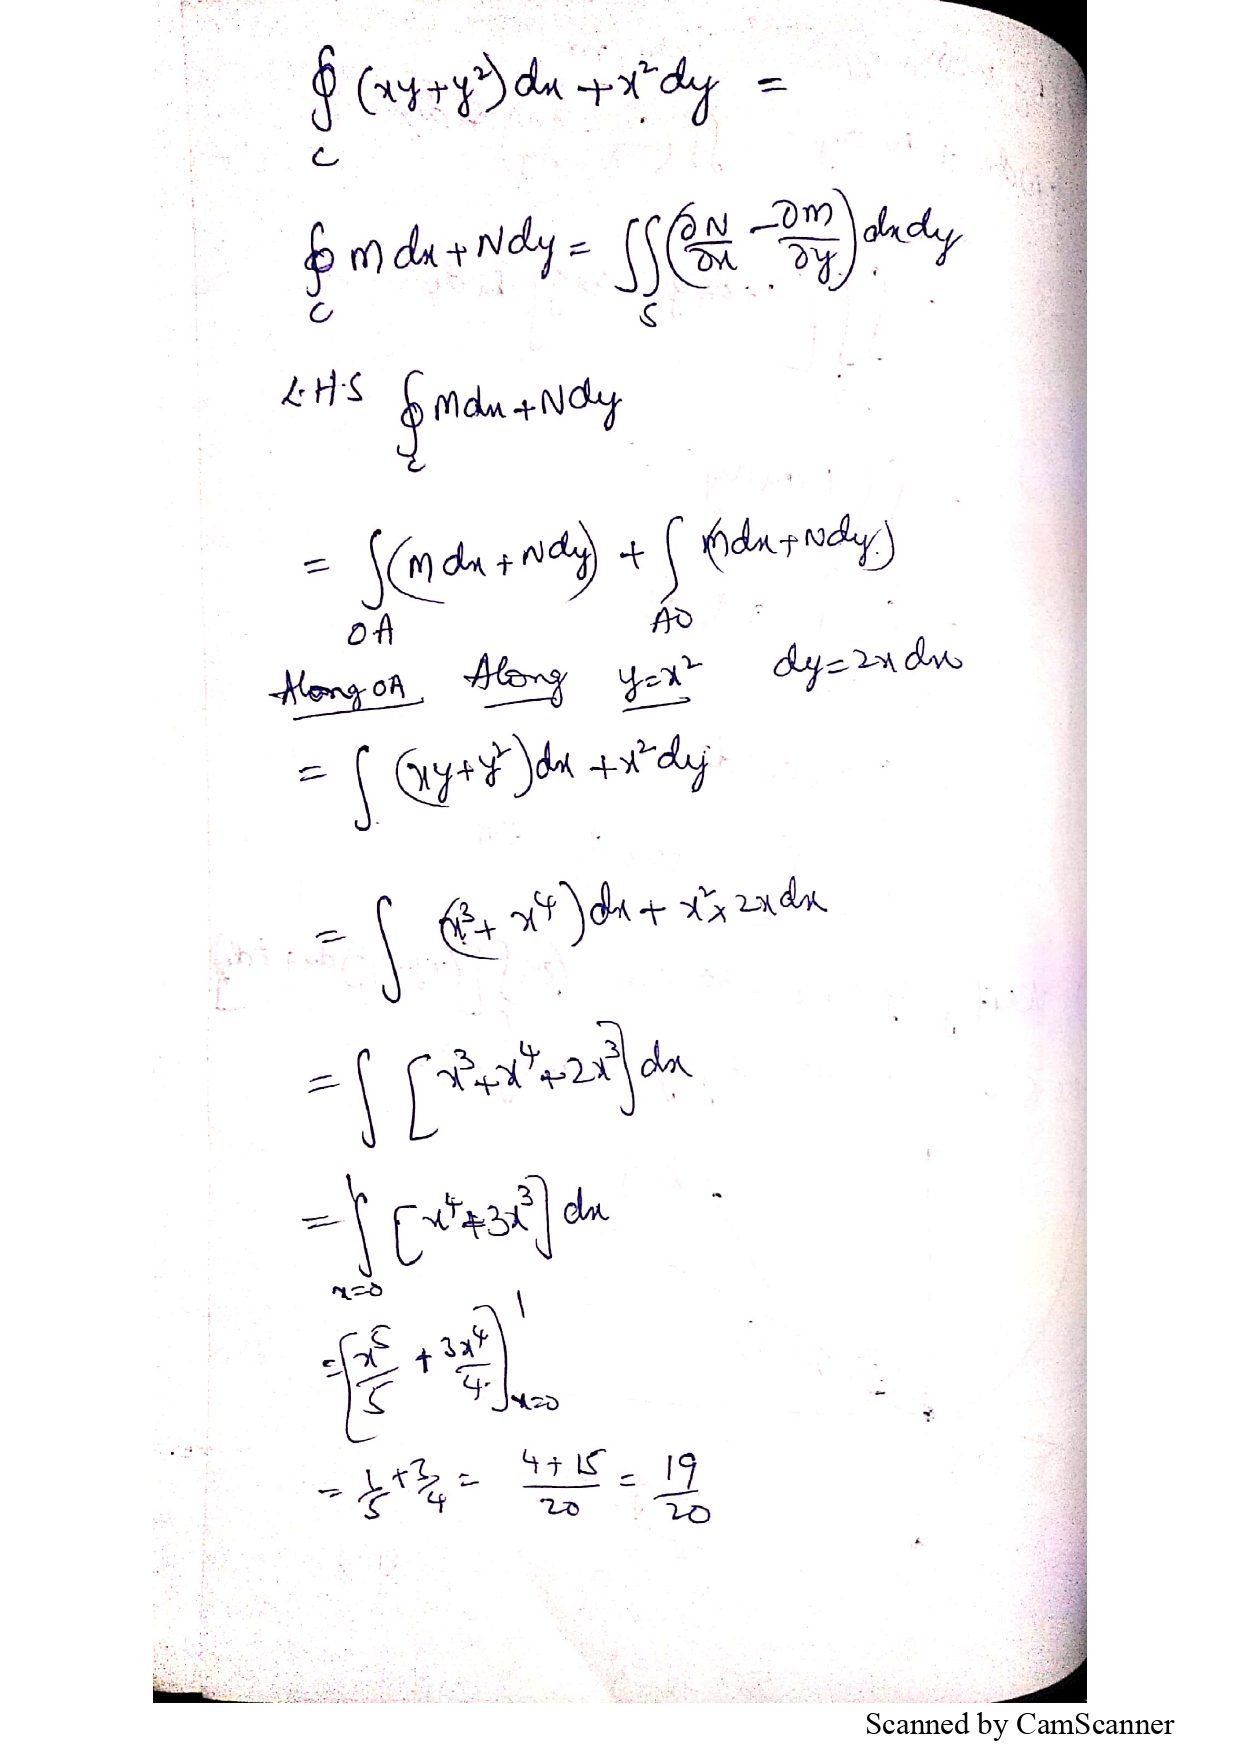 ∮_C (xy+y²)dx + x²dy =
∮_C M dx + N dy = ∬_S (∂N/∂x - ∂M/∂y) dxdy
L.H.S ∮_C Mdx + Ndy
= ∫_OA (M dx + Ndy) + ∫_AO (Mdx + Ndy)
Along OA Along y=x² dy = 2x dx
= ∫ (xy+y²)dx + x²dy
= ∫ (x³ + x⁴)dx + x² × 2x dx
= ∫ [x³ + x⁴ + 2x³] dx
= ∫_{x=0}^{1} [x⁴ + 3x³] dx
= [x⁵/5 + 3x⁴/4]_{x=0}^{1}
= 1/5 + 3/4 = (4+15)/20 = 19/20
Scanned by CamScanner